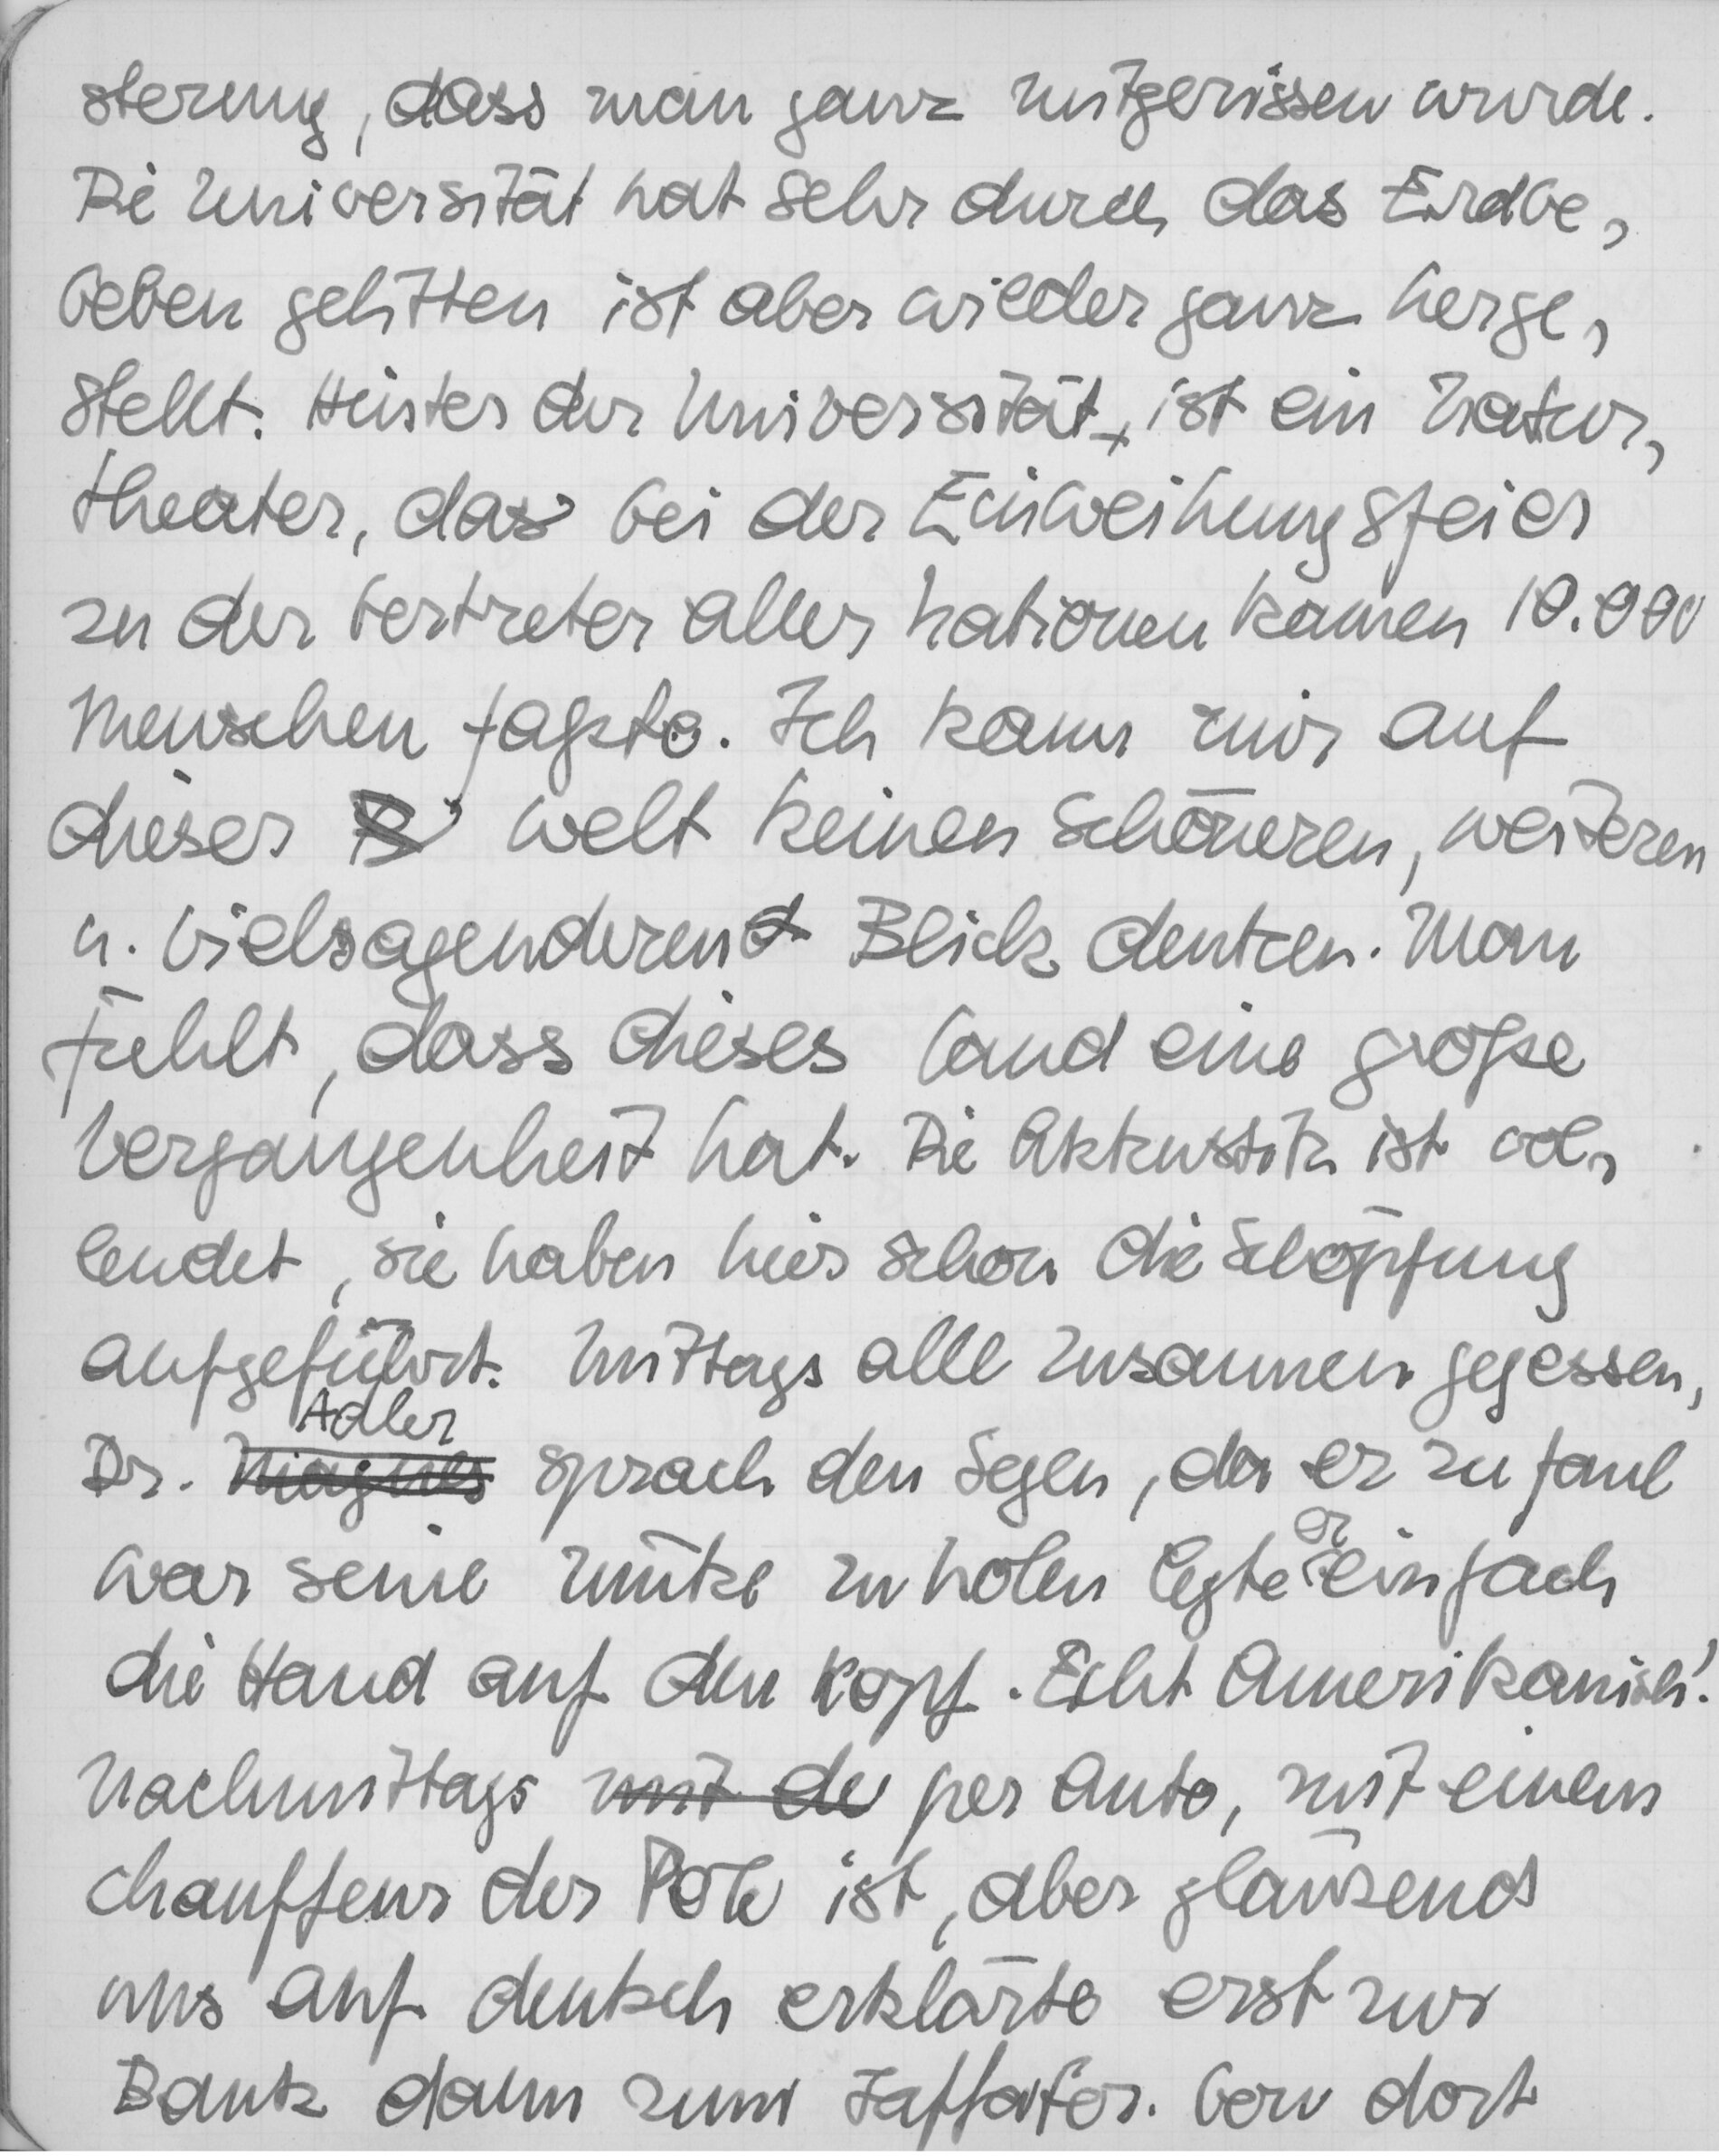 sterung, dass man ganz mitgerissen wurde.
Die Universität hat sehr durch das Erdbe,
beben gelitten ist aber wieder ganz herge,
stellt. Hinter der Universität, ist ein Natur,
theater, das bei der Einweihungsfeier
zu der Vertreter aller Nationen kamen 10.000
Menschen fasste. Ich kann mir auf
dieser Welt keinen schöneren, weiteren
u. vielsagenderen Blick denken. Man
fühlt, dass dieses Land eine große
Vergangenheit hat. Die Akkustik ist vol,
lendet, sie haben hier schon die Schöpfung
aufgeführt. Mittags alle zusammen gegessen,
Dr. Magnes Adler sprach den Segen, da er zu faul
war seine Mütze zu holen legte er einfach
die Hand auf den Kopf. Echt Amerikanisch!
Nachmittags mit de per Auto, mit einem
Chauffeur der Pole ist, aber glänzend
uns auf deutsch erklärte erst zur
Bank dann zum Jaffator. Von dort